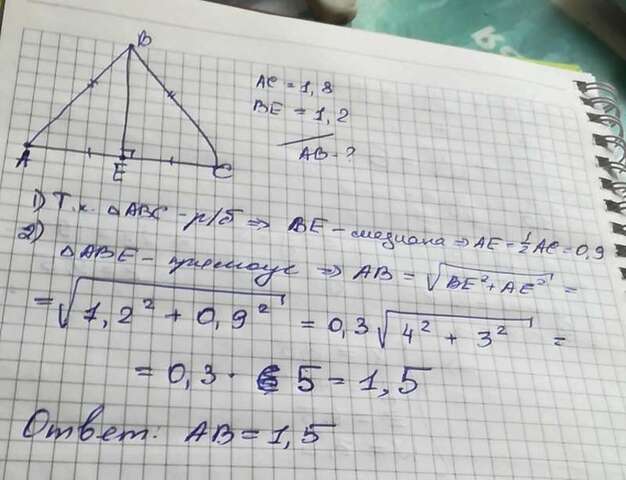 B
A
E
C
AC = 1,8
BE = 1,2
AB - ?
1) Т.к. △ABC - р/б ⇒ BE - медиана ⇒ AE = 1/2 AC = 0,9
2) △ABE - прямоуг ⇒ AB = √BE² + AE² =
= √1,2² + 0,9² = 0,3 √4² + 3² =
= 0,3 · 5 = 1,5
Ответ: AB = 1,5